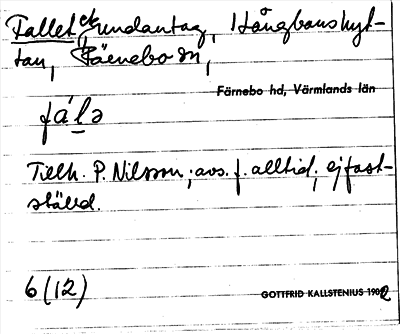 Tallet, undantag, Långbanshyt-
tan, Färnebo sn,
Färnebo hd, Värmlands län
fálə
Tillh. P. Nilsson; avs. f. alltid; ej fast-
ställd.
6 (12)
GOTTFRID KALLSTENIUS 1902